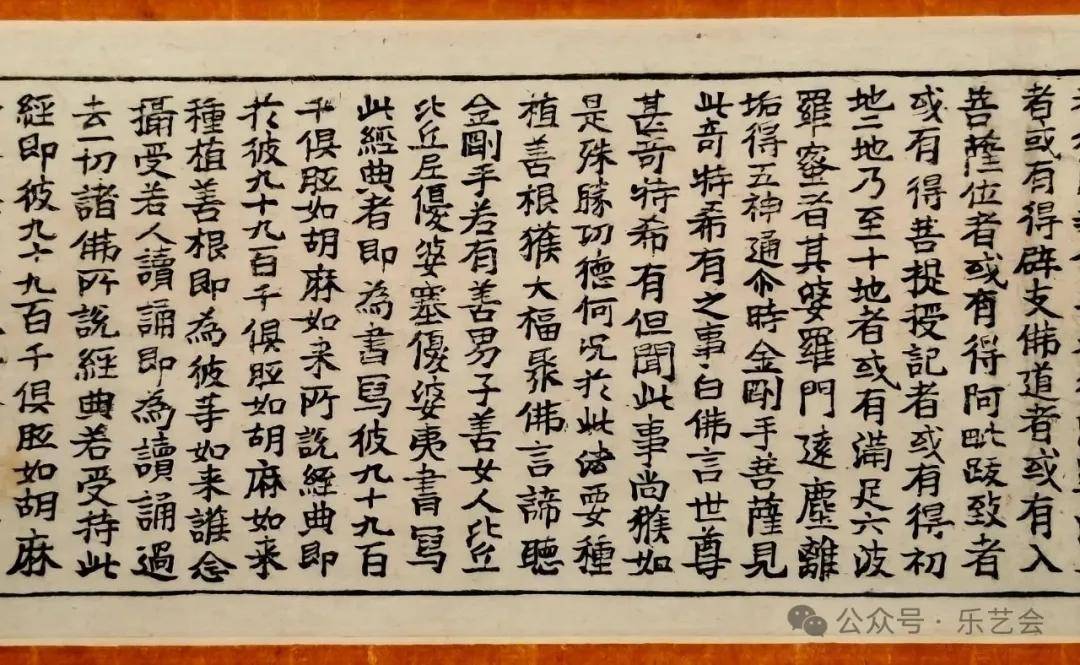 者或有得辟支佛道者或有入
菩薩位者或有得阿毗跋致者
或有得菩提授記者或有得初
地二地乃至十地者或有滿足六波
羅蜜者其婆羅門遠塵離
垢得五神通尒時金剛手菩薩見
此奇特希有之事白佛言世尊
甚奇特希有但聞此事尚獲如
是殊勝功德何况於此法要種
植善根獲大福聚佛言諦聽
金剛手若有善男子善女人比丘
比丘尼優婆塞優婆夷書寫
此經典者即為書寫彼九十九百
千俱胝如胡麻如来所説經典即
於彼九十九百千俱胝如胡麻如来
種植善根即為彼等如来護念
攝受若人讀誦即為讀誦過
去一切諸佛所說經典若受持此
經即彼九十九百千俱胝如胡麻
公众号·乐艺会